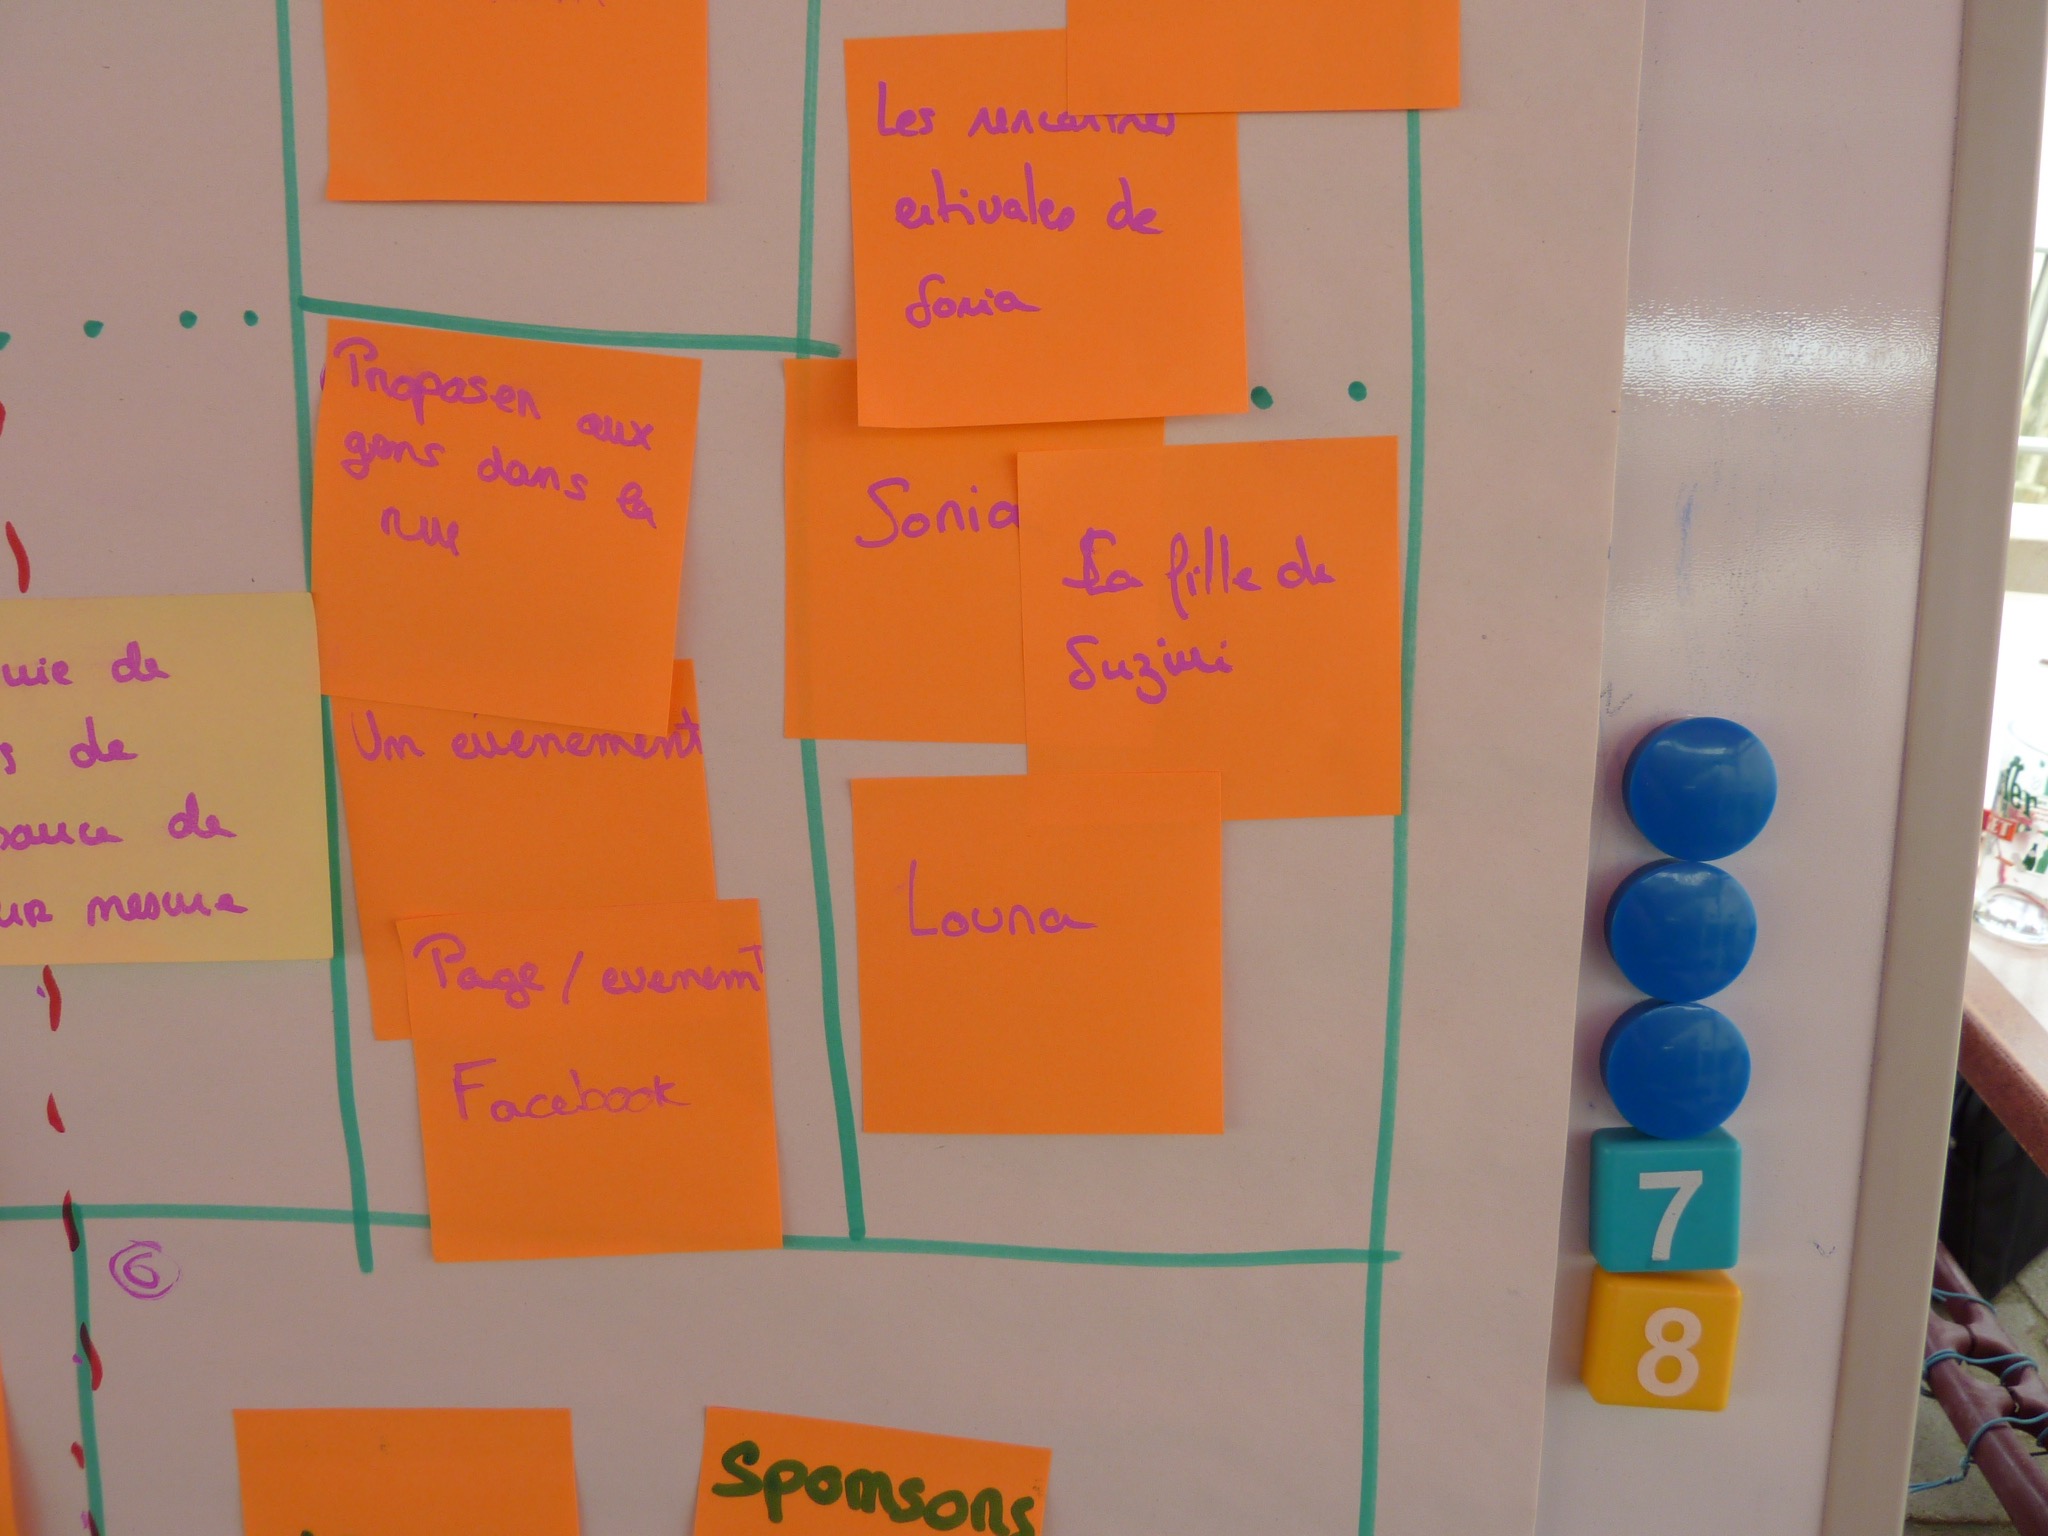 Les rencontres
estivales de
Sonia
Proposer aux
gens dans la
rue
Sonia
La fille de
Suzini
de
s de
de
mesure
Un évènement
Page / evenemt
Facebook
Louna
7
8
6
Sponsors